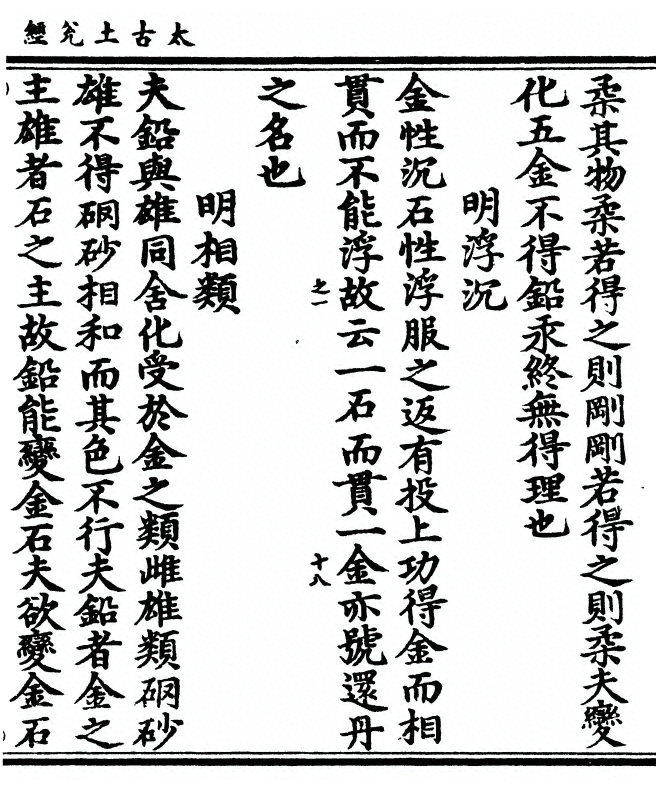 太古土兊經
柔其物柔若得之則剛剛若得之則柔夫變
化五金不得鉛汞終無得理也
明浮沉
金性沉石性浮服之返有投上功得金而相
貫而不能浮故云一石而貫一金亦號還丹
之一
十八
之名也
明相類
夫鉛與雄同舍化受於金之類雌雄類硇砂
雄不得硇砂相和而其色不行夫鉛者金之
主雄者石之主故鉛能變金石夫欲變金石